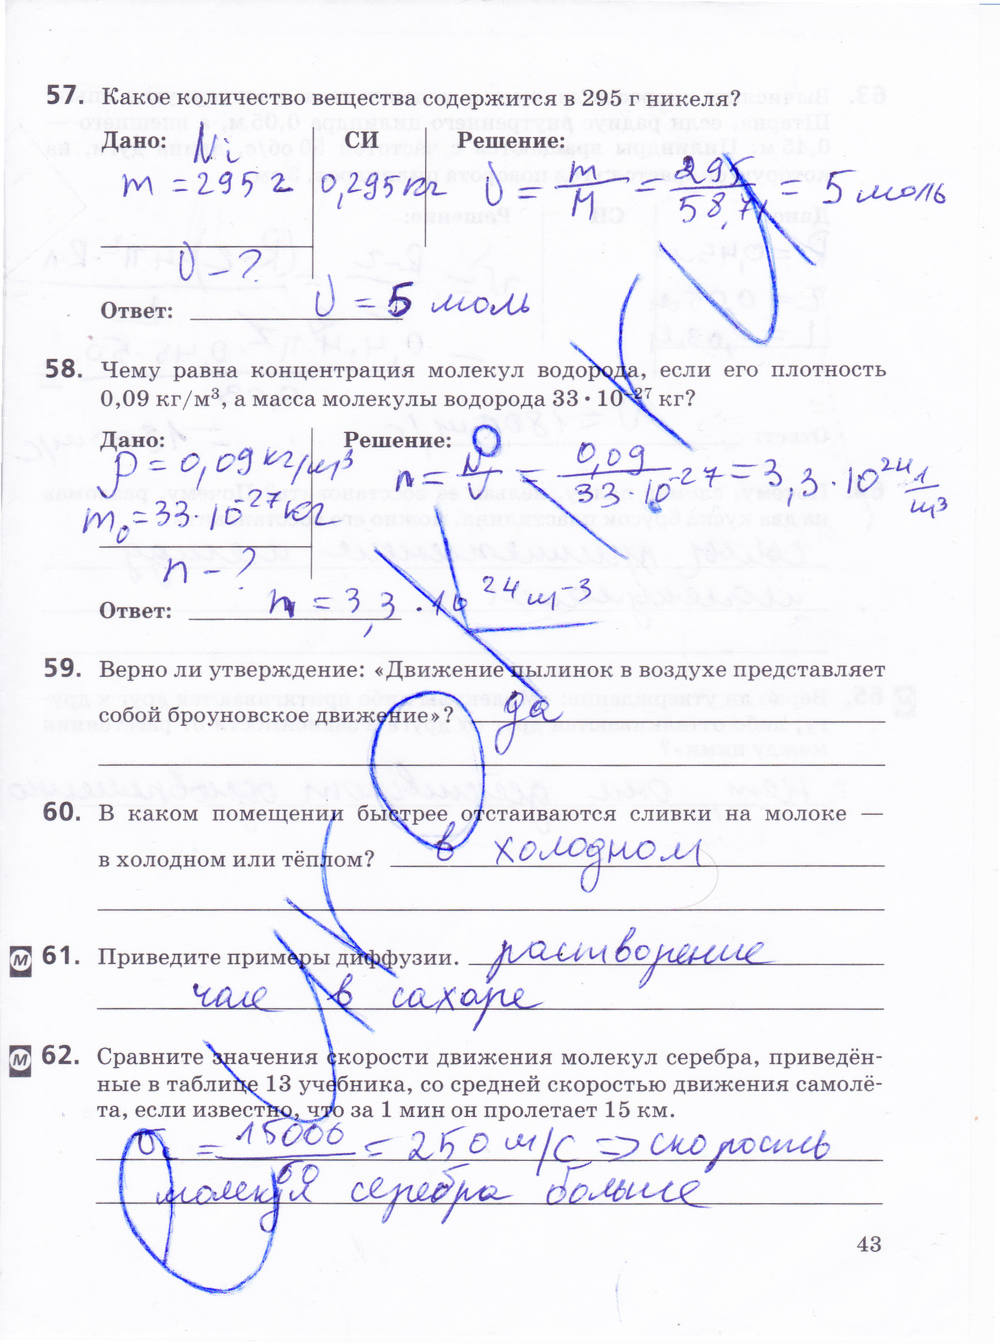 57. Какое количество вещества содержится в 295 г никеля?
Дано: Ni СИ Решение:
m = 295 г 0,295 кг υ = m/M = 295/58,7 = 5 моль
υ – ?
Ответ: υ = 5 моль
58. Чему равна концентрация молекул водорода, если его плотность
0,09 кг/м³, а масса молекулы водорода 33 · 10⁻²⁷ кг?
Дано: Решение:
ρ = 0,09 кг/м³ n = N/V = 0,09/33 · 10⁻²⁷ = 3,3 · 10²⁴ 1/м³
m₀ = 33 · 10⁻²⁷ кг
n – ?
Ответ: n = 3,3 · 10²⁴ м⁻³
59. Верно ли утверждение: «Движение пылинок в воздухе представляет
собой броуновское движение»? да
60. В каком помещении быстрее отстаиваются сливки на молоке —
в холодном или тёплом? в холодном
М 61. Приведите примеры диффузии. растворение
чая в сахаре
М 62. Сравните значения скорости движения молекул серебра, приведён-
ные в таблице 13 учебника, со средней скоростью движения самолё-
та, если известно, что за 1 мин он пролетает 15 км.
= 15000/60 = 250 м/с => скорость
молекул серебра больше
43